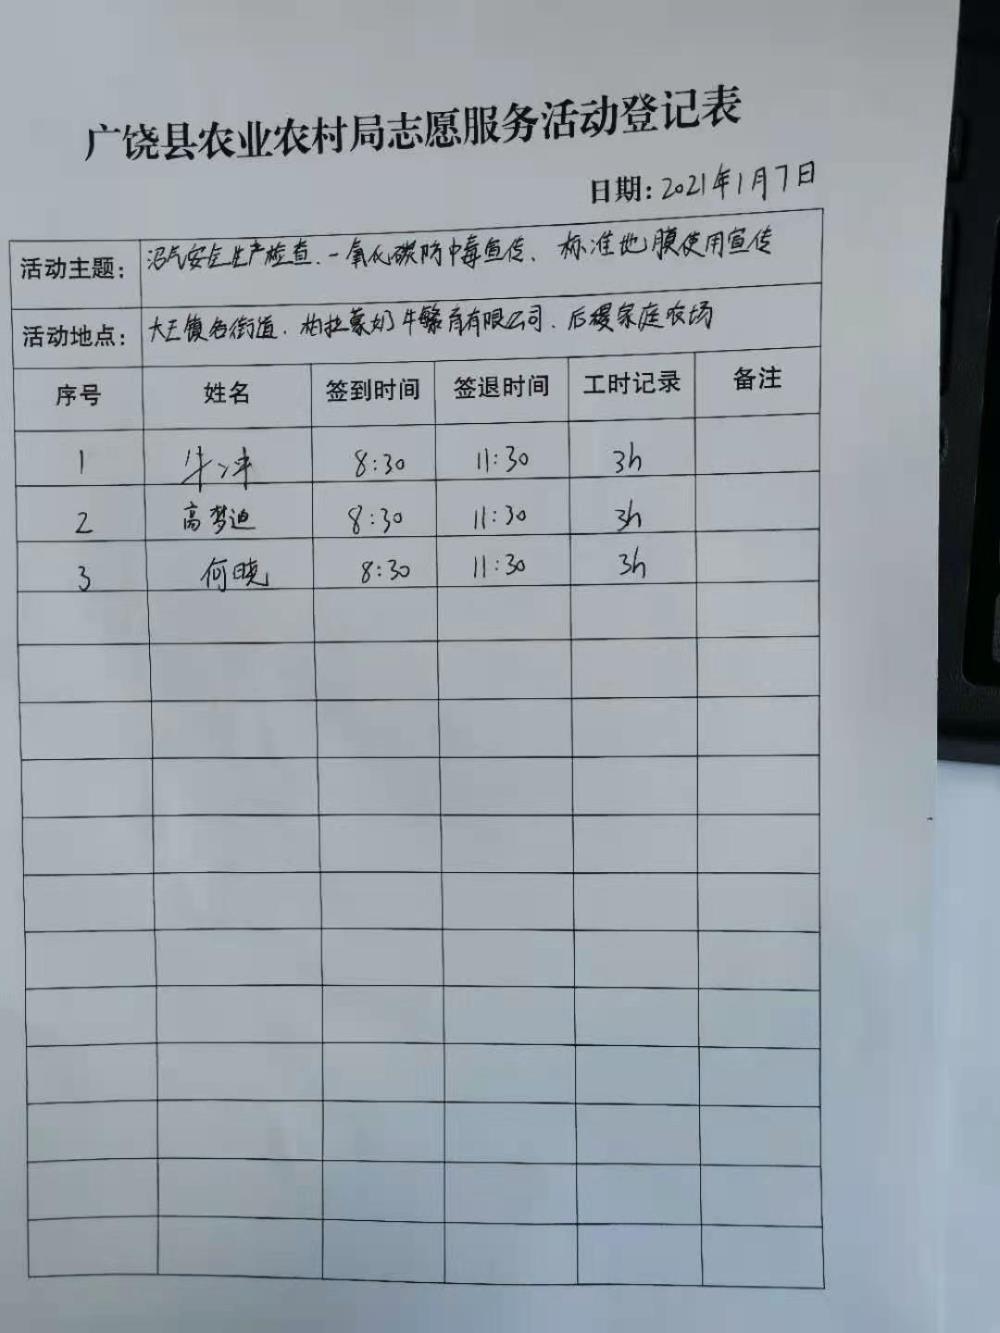 广饶县农业农村局志愿服务活动登记表
日期:2021年1月7日
活动主题: 沼气安全生产检查、一氧化碳防中毒宣传、标准地膜使用宣传
活动地点: 大王镇各街道、柏拉蒙奶牛繁育有限公司、后缓家庭农场
序号 姓名 签到时间 签退时间 工时记录 备注
1 牛冲 8:30 11:30 3h
2 高梦迪 8:30 11:30 3h
3 何晓 8:30 11:30 3h